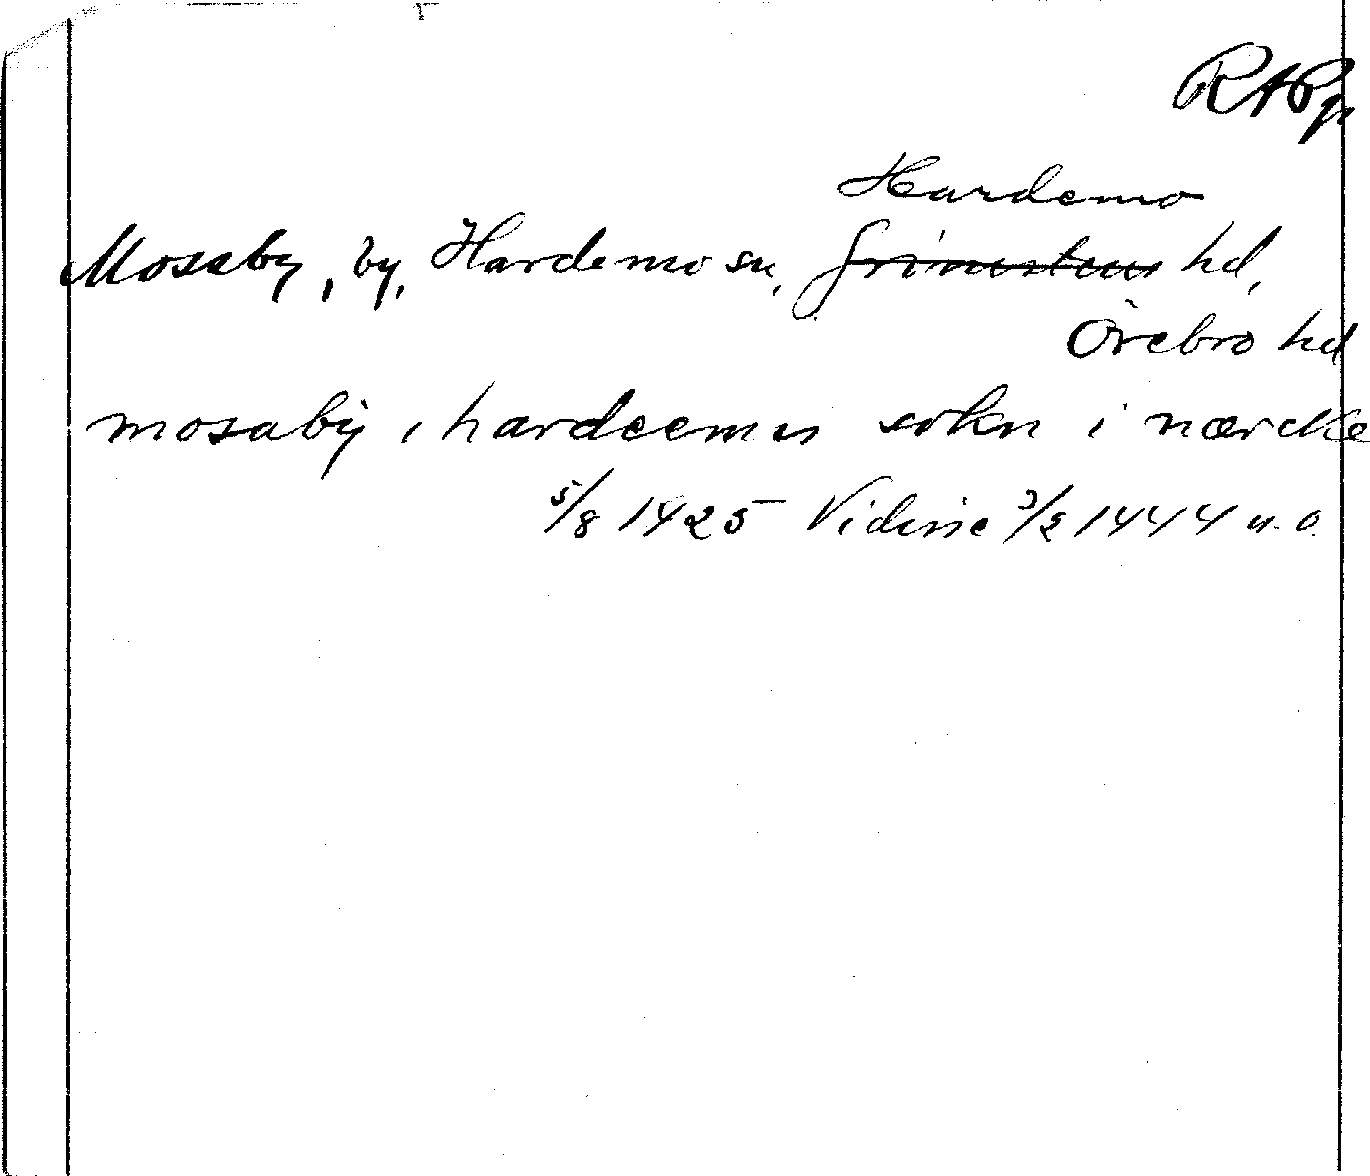 RAPp
Hardemo
Mosaby, by, Hardemo sn, Grimstens hd,
Örebro hd
mosaby, hardeemus sokn i nærcke
5/8 1425 Vidisse 3/2 1444 u. o.